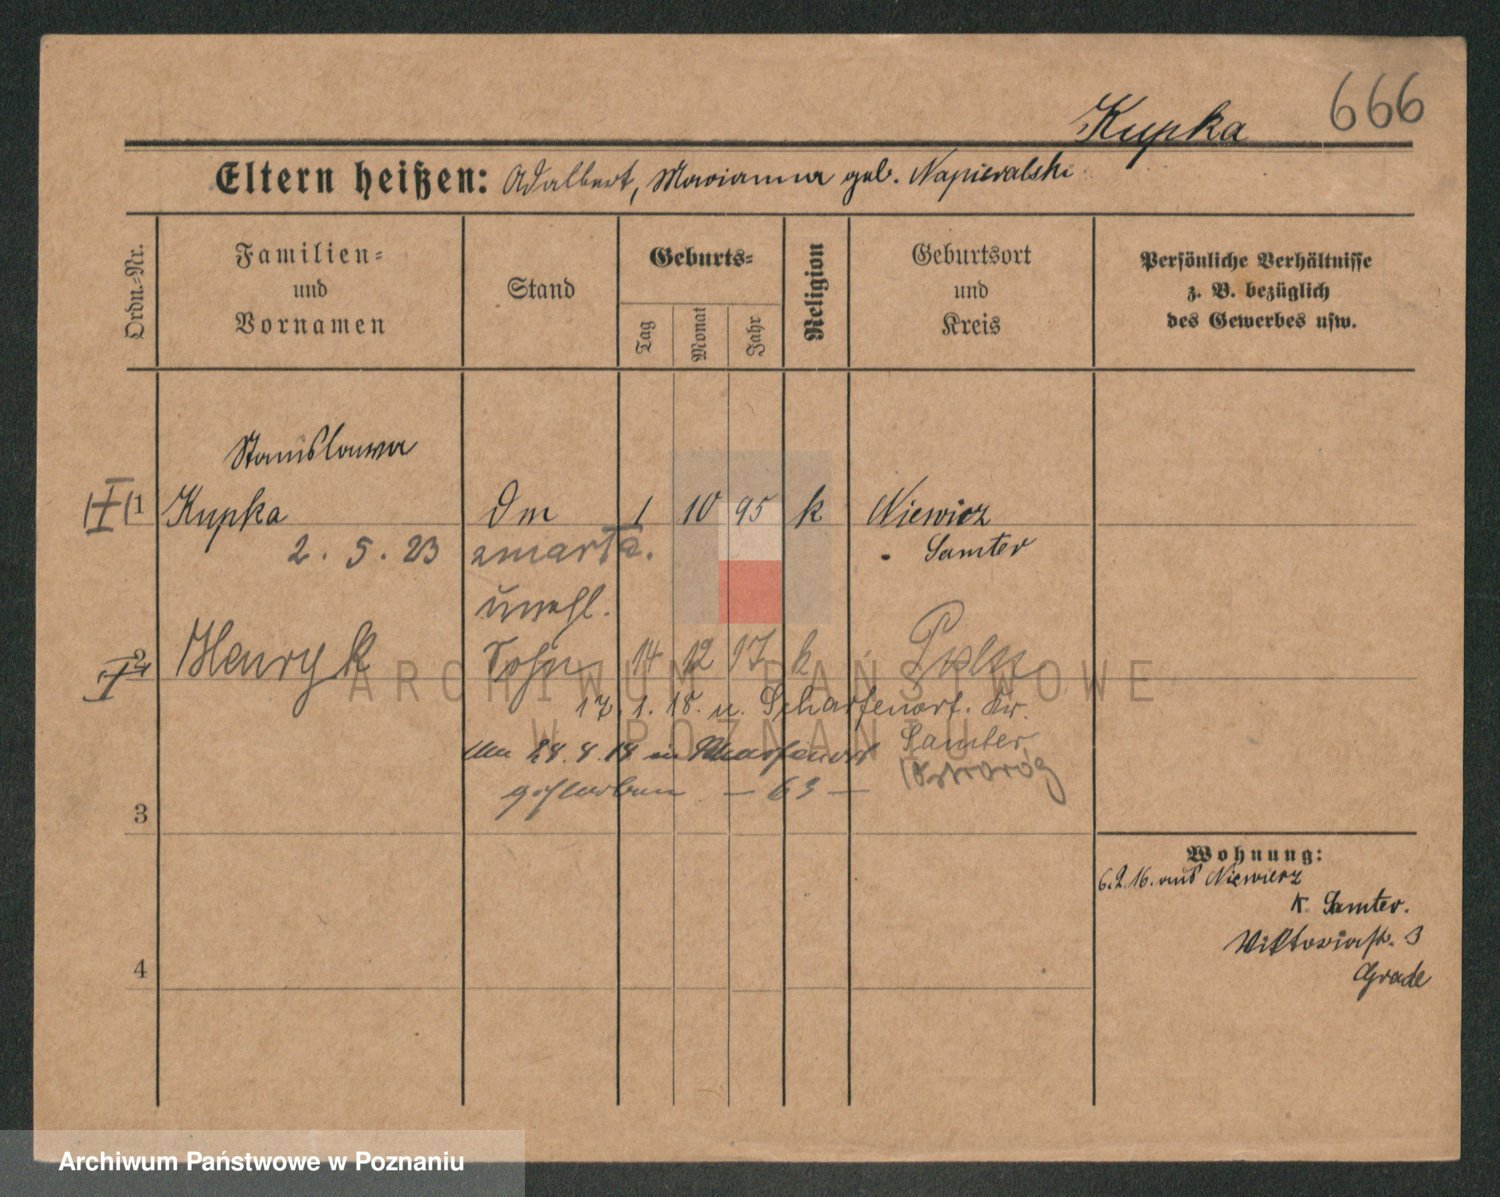 666
Kupka
Eltern heißen: Adalbert, Marianna geb. Napieralski
Ordn.-Nr.
Familien-
und
Vornamen
Stand
Geburts-
Tag
Monat
Jahr
Religion
Geburtsort
und
Kreis
Persönliche Verhältnisse
z. B. bezüglich
des Gewerbes usw.
Stanislawa
I 1 Kupka Dm 1 10 95 k Niewierz
2. 5. 23 zmarła. Samter
unehl.
2 Henryk Sohn 14 12 17 k Posen
17. 1. 18. n. Scharfenort. Kr.
Samter
Am 28. 8. 18 in Scharfenort
(Ostroróg
gestorben — 63 —
3
4
Wohnung:
6.2.16. aus Niewierz
K. Samter.
Viktoriastr. 3
Grade
ARCHIWUM PAŃSTWOWE
W POZNANIU
Archiwum Państwowe w Poznaniu